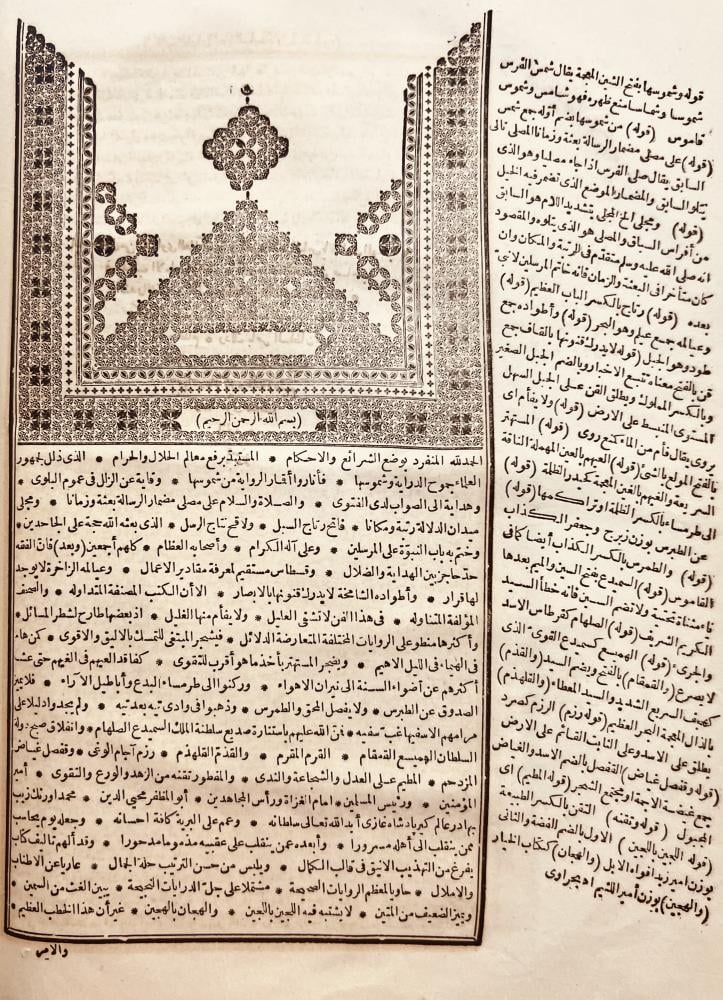 (بسم الله الرحمن الرحيم)
الحمد لله المنفرد بوضع الشرائع والاحكام * المستبد برفع معالم الحلال والحرام * الذى ذلل لجمهور
العلماء جموح الدراية وشموسها * فأناروا أقمار الرواية من شموسها * وقاية عن الزال فى عموم البلوى *
وهداية الى الصواب لدى الفتوى * والصلاة والسلام على مصلى مضمار الرسالة بعثة وزمانا * ومجلى
ميدان الدلالة رتبة ومكانا * فاتح رتاج السبل * ولاقح نتاج الرسل * الذى بعثه الله حجة على الجاحدين *
وختم به باب النبوة على المرسلين * وعلى آله الكرام * وأصحابه العظام * كلهم أجمعين (وبعد) فان الفقه
حد حاجز بين الهداية والضلال * وقسطاس مستقيم لمعرفة مقادير الاعمال * وعيالمه الزاخرة لا يوجد
لها قرار * وأطواده الشامخة لا يدرك قنونها بالابصار * الا أن الكتب المصنفة المتداوله * والصحف
المؤلفة المتناوله * فى هذا الفن لا تشفى العليل * ولا يفأم منها الغليل * اذ بعضها طارح لشطر المسائل *
وأكثرها منطو على الروايات المختلفة المتعارضة الدلائل * فتحير المبتغى للتمسك بالاليق والاقوى * كن هاء
فى الهيماء فى الليل الاهيم * ويضجر المستهتر بأخذ ما هو أقرب للتقوى * كفاقد العيهم فى الغيهم حتى عشا
أكثرهم عن أضواء السنة الى نيران الاهواء * وركنوا الى طرمساء البدع وأباطيل الآراء * فلا يميز
الصدوق عن الطبرس * ولا يفصل المحق والطمرس * وذهبوا فى وادى تيه بعد تيه * ولم يجدوا دليلا على
مرامهم الا سفيها غب سفيه * فمن الله عليهم باستنارة صديع سلطنة الملك السميدع الصلهام * وانفلاق صبح دولة
السلطان الهميسع القمقام * القرم المقرم * والقذم القلهذم * رزم آجام الوغى * وقصفل غياض
المزدحم * المطيم على العدل والشجاعة والندى * والمفطور تقنه من الزهد والورع والتقوى * أمير
المؤمنين * ورئيس المسلمين * امام الغزاة ورأس المجاهدين * أبو المظفر محيى الدين * محمد اورنك زيب
بهادر عالم كير بادشاه غازى أبد الله تعالى سلطانه * وعم على البرية كافة احسانه * وجعله يوم يحاسب
ممن ينقلب الى أهله مسرورا * وأبعده عمن ينقلب على عقبيه مذموما مدحورا * وقد ألهم تأليف كتاب
يفرغ من التهذيب الانيق فى قالب الكمال * ويلبس من حسن الترتيب حلة الجمال * عاريا عن الاطناب
والاملال * حاويا لمعظم الروايات الصحيحة * مشتملا على جل الدرايات النجيحة * يبين الغث من السمين *
ويميز الضعيف من المتين * لا يشتبه فيه اللجين باللجين * والهجان بالهجين * غير أن هذا الخطب العظيم *
والامر
قوله وشموسها بفتح الشين المعجمة يقال شمس الفرس
شموسا وشماسا منع ظهره فهو شامس وشموس
قاموس (قوله) من شموسها بضم أوله جمع شمس
(قوله) على مصلى مضمار الرسالة بعثة وزمانا المصلى تالى
السابق يقال صلى الفرس اذا جاء مصليا وهو الذى
يتلو السابق والمضمار الموضع الذى تضمر فيه الخيل
(قوله) ومجلى الخ المجلى بتشديد اللام هو السابق
من أفراس السباق والمصلى هو الذى يتلوه والمقصود
انه صلى الله عليه وسلم متقدم فى الرتبة والمكان وان
كان متأخرا فى البعثة والزمان فانه خاتم المرسلين لا نبى
بعده (قوله) رتاج بالكسر الباب العظيم (قوله)
وعيالمه جمع عيلم وهو البحر (قوله) وأطواده جمع
طود وهو الجبل (قوله لا يدرك قنونها بالقاف جمع
قن بالفتح معناه تتبع الاخبار وبالضم الجبل الصغير
وبالكسر المملوك ويطلق القن على الجبل السهل
المستوى المنبسط على الارض (قوله) ولا يفأم اى
يروى يقال فأم من الماء كنع روى (قوله) المستهتر
بالفتح المولع بالشئ (قوله) العيهم بالعين المهملة الناقة
السريعة والغيهم بالغين المعجمة كحيدر الظلمة (قوله)
الى طرمساء بالكسر الظلمة او تراكمها (قوله)
عن الطبرس بوزن زبرج وجعفر الكذاب
(قوله) والطمرس بالكسر الكذاب أيضا كما فى
القاموس (قوله) السميدع بفتح السين والميم بعدها
ياء مثناة تحتية ولا تضم السين فانه خطأ السيد
الكريم الشريف (قوله) الصلهام كقرطاس الاسد
والجرىء (قوله) الهميسع كسميدع القوى الذى
لا يصرع (والقمقام) بالفتح ويضم السيد (والقذم)
كهجف السريع الشديد والسيد المعطاء (والقلهذم)
بالذال المعجمة البحر العظيم (قوله رزم) الرزم كصرد
يطلق على الاسد وعلى الثابت القائم على الارض
(قوله وقصفل غياض) القصفل بالضم الاسد والغياض
جمع غيضة الاجمة ومجتمع الشجر (قوله المطيم) اى
المجبول (قوله وتقنه) التقن بالكسر الطبيعة
(قوله اللجين باللجين) الاول بالضم الفضة والثانى
بوزن امير زبد افواه الابل (والهجان) ككتاب الخيار
(والهجين) بوزن أمير اللئيم اه بحراوى